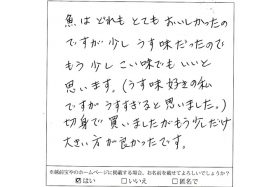 魚はどれもとてもおいしかったの
ですが少しうす味だったので
もう少しこい味でもいいと
思います。(うす味好きの私
ですがうすすぎると思いました。)
切身で買いましたがもう少しだけ
大きい方が良かったです。
※感謝文やホームページに掲載する場合、お名前を載せてよろしいでしょうか?
☑はい □いいえ □匿名で